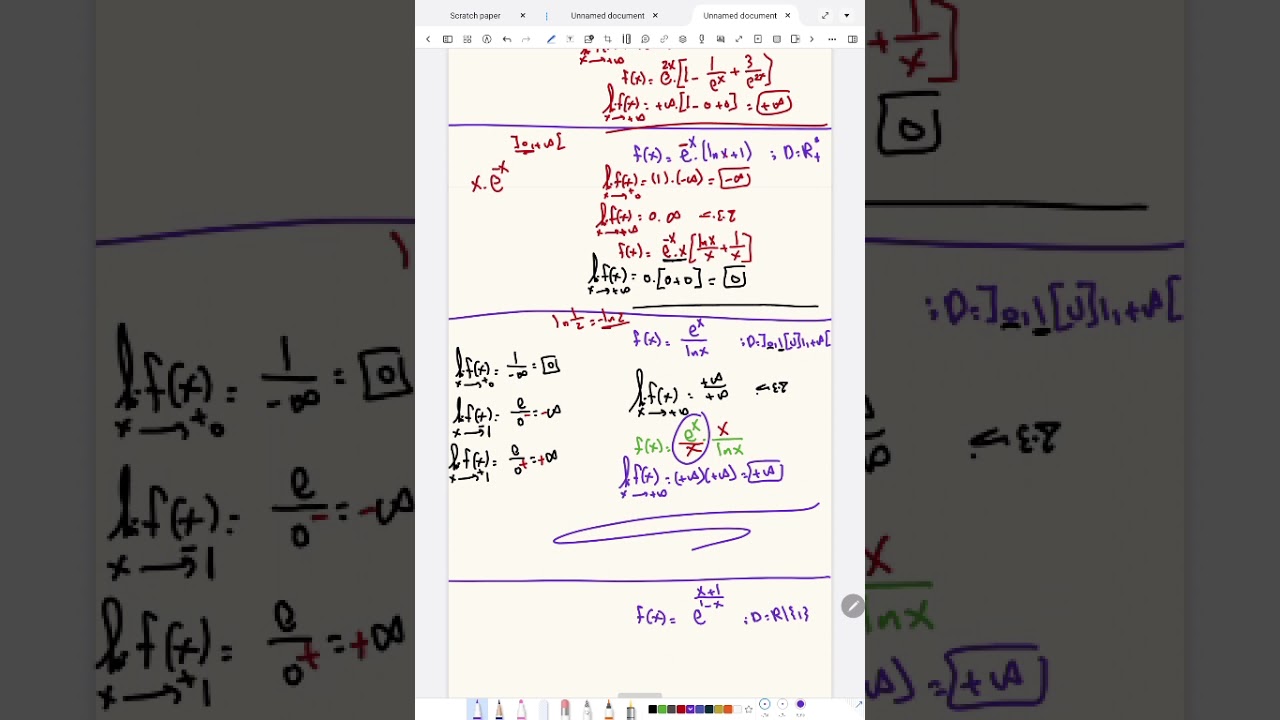 Scratch paper
Unnamed document
Unnamed document
x→+∞
f(x) = e^{2x} · [1 - 1/e^x + 3/e^{2x}]
lim f(x) = +∞ · [1 - 0 + 0] = +∞
x→+∞
]0,+∞[
x · e^{-x}
f(x) = e^{-x} · (ln x + 1) ; D = R*₊
lim f(x) = (1) · (-∞) = -∞
x→0⁺
lim f(x) = 0 · ∞ ح.ع.ت
x→+∞
f(x) = e^{-x} · x [ln x/x + 1/x]
lim f(x) = 0 · [0 + 0] = 0
x→+∞
ln 1/2 = -ln 2
f(x) = e^x/ln x ; D = ]0,1[∪]1,+∞[
lim f(x) = 1/-∞ = 0
x→0⁺
lim f(x) = e/0⁻ = -∞
x→1⁻
lim f(x) = e/0⁺ = +∞
x→1⁺
lim f(x) = +∞/+∞ ح.ع.ت
x→+∞
f(x) = e^x/x · x/ln x
lim f(x) = (+∞)(+∞) = +∞
x→+∞
f(x) = e^{(x+1)/(1-x)} ; D = R\{1}